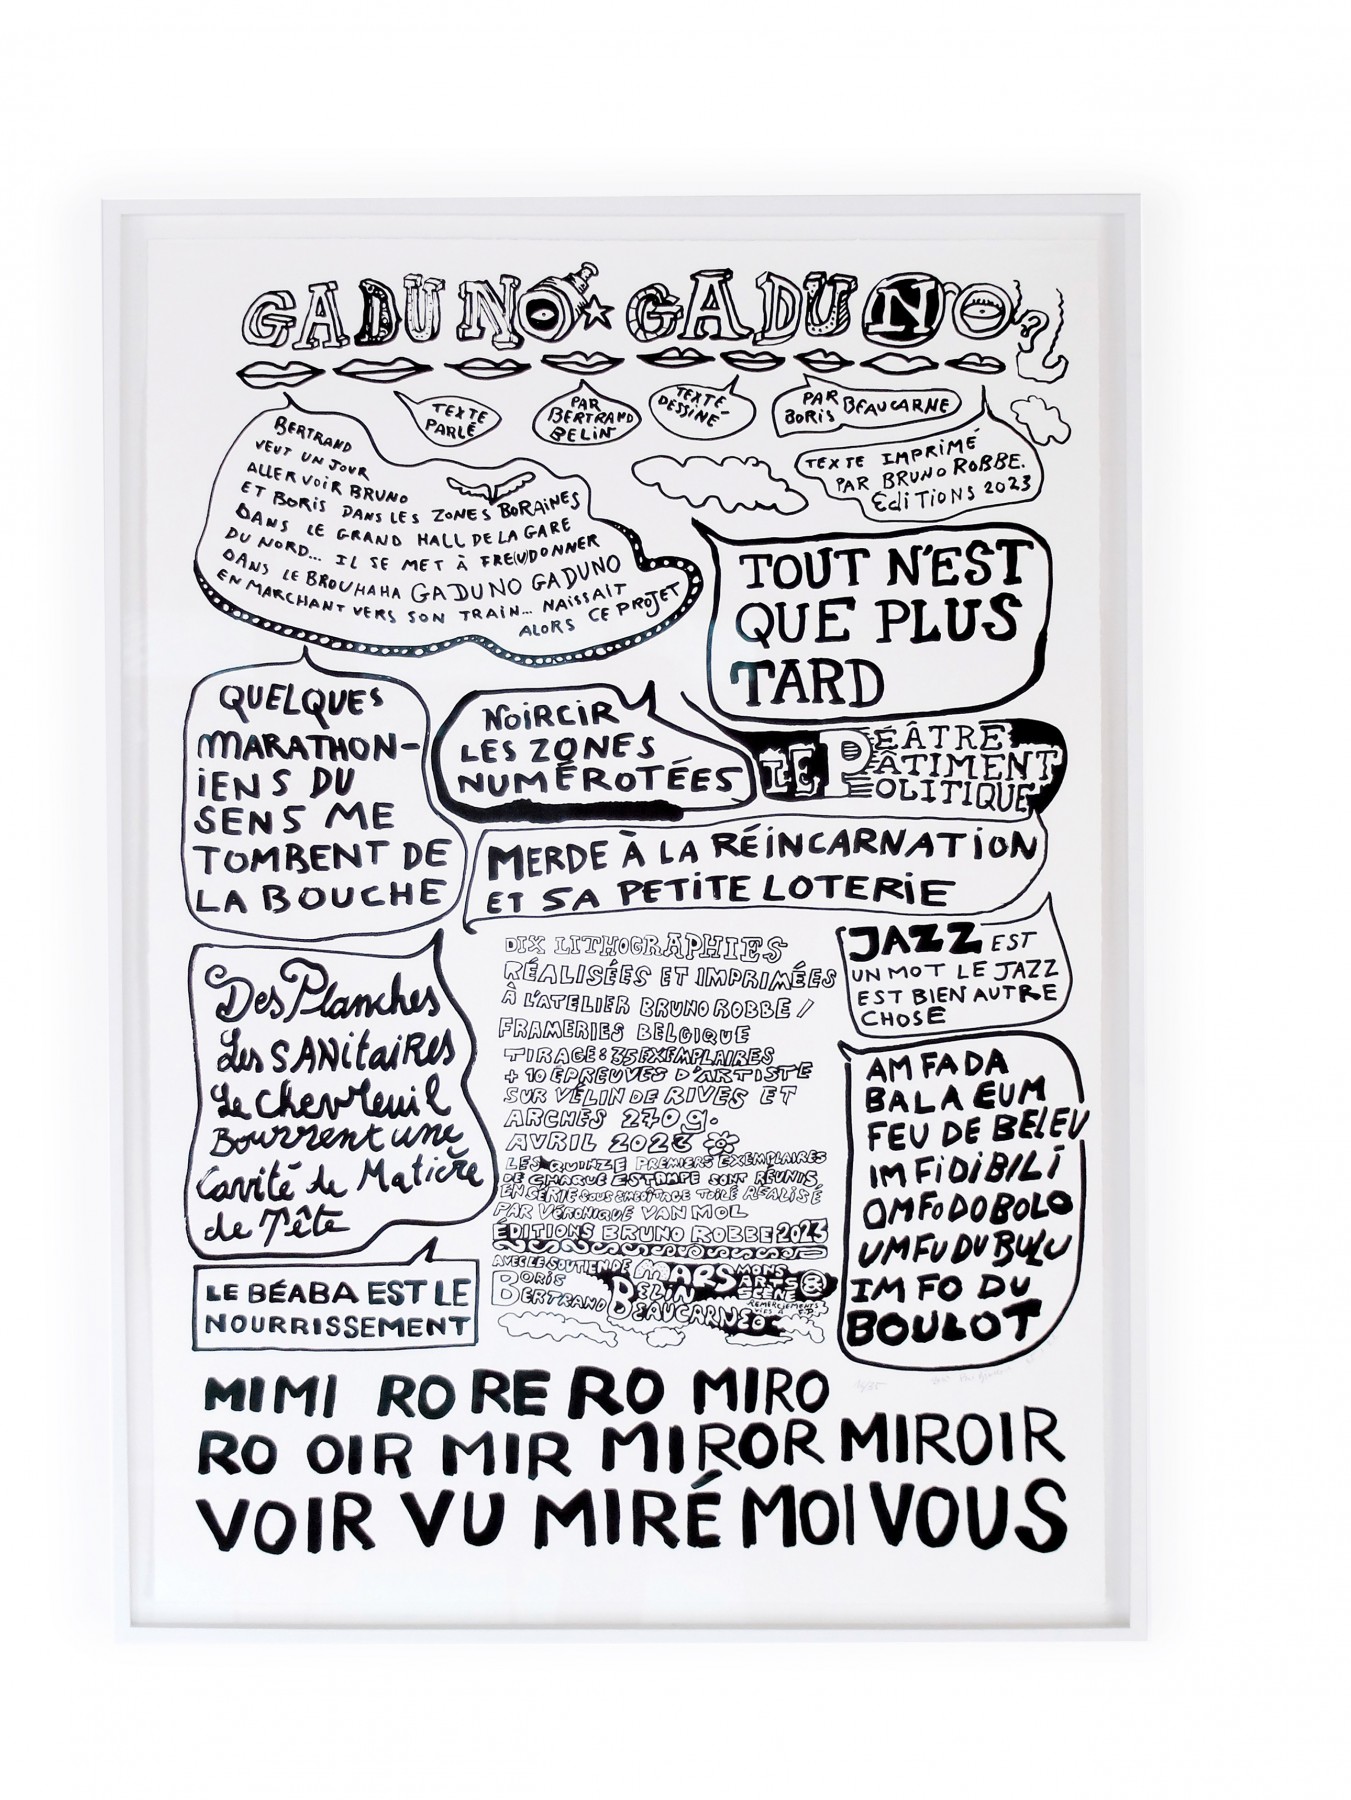 GADUNO ★ GADUNO ?
TEXTE
PARLÉ
PAR
BERTRAND
BELIN
TEXTE-
DESSINÉ
PAR
BORIS BEAUCARNE
TEXTE IMPRIMÉ
PAR BRUNO ROBBE.
EdiTiONS 2023
BERTRAND
VEUT UN JOUR
ALLER VOIR BRUNO
ET BORIS DANS LES ZONES BORAINES
DANS LE GRAND HALL DE LA GARE
DU NORD... IL SE MET À FRE(U)DONNER
DANS LE BROUHAHA GADUNO GADUNO
EN MARCHANT VERS SON TRAIN... NAISSAIT
ALORS CE PROJET
TOUT N'EST
QUE PLUS
TARD
QUELQUES
MARATHON-
iENS DU
SENS ME
TOMBENT DE
LA BOUCHE
NOiRCIR
LES ZONES
NUMÉROTÉES
LE PÉÂTRE
PÂTIMENT
POLITIQUE
MERDE À LA RÉINCARNATiON
ET SA PETITE LOTERIE
Des Planches
Les SANitaiRES
Le chevreuil
Bourrent une
Cavité de Matière
de Tête
DIX LITHOGRAPHIES
RÉALISÉES ET IMPRIMÉES
À L'ATELIER BRUNO ROBBE /
FRAMERIES BELGIQUE
TIRAGE : 35 EXEMPLAIRES
+ 10 ÉPREUVES D'ARTISTE
SUR VÉLIN DE RIVES ET
ARCHES 270 g.
AVRIL 2023
LES QUINZE PREMIERS EXEMPLAIRES
DE CHAQUE ESTAMPE SONT RÉUNIS
EN SÉRIE SOUS EMBOÎTAGE TOILÉ RÉALISÉ
PAR VÉRONIQUE VAN MOL
ÉDITIONS BRUNO ROBBE 2023
AVEC LE SOUTIEN DE MARS MONS
ARTS &
SCÈNE
BORIS
BERTRAND
BELIN
BEAUCARNE
REMERCIEMENTS
JAZZ EST
UN MOT LE JAZZ
EST BIEN AUTRE
CHOSE
AM FA DA
BA LA EUM
FEU DE BELEU
IM FiDiBiLi
OMFODOBOLO
UMFUDUBULU
IM FO DU
BOULOT
LE BÉABA EST LE
NOURRISSEMENT
MIMI RO RE RO MIRO
RO OIR MIR MIROR MIROIR
VOIR VU MIRÉ MOI VOUS